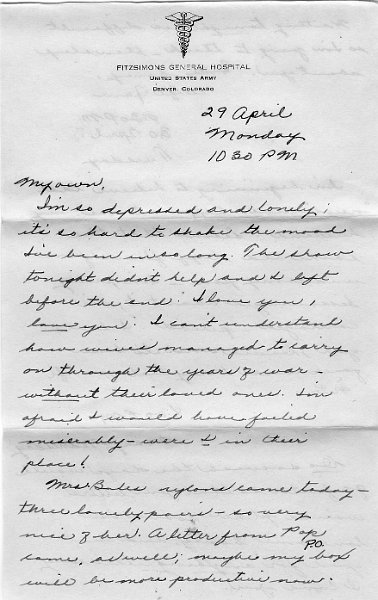 FITZSIMONS GENERAL HOSPITAL
UNITED STATES ARMY
DENVER, COLORADO
29 April
Monday
10 30 PM
My own,
I'm so depressed and lonely;
it's so hard to shake the mood
I've been in so long. The show
tonight didn't help and I left
before the end. I love you,
love you. I can't understand
how wives managed to carry
on through the years of war -
without their loved ones. I'm
afraid I would have failed
miserably - were I in their
place!
Mrs. Bales nylons came today -
three lovely pairs - so very
nice of her. A letter from Pop
came, as well; maybe my P.O. box
will be more productive now.